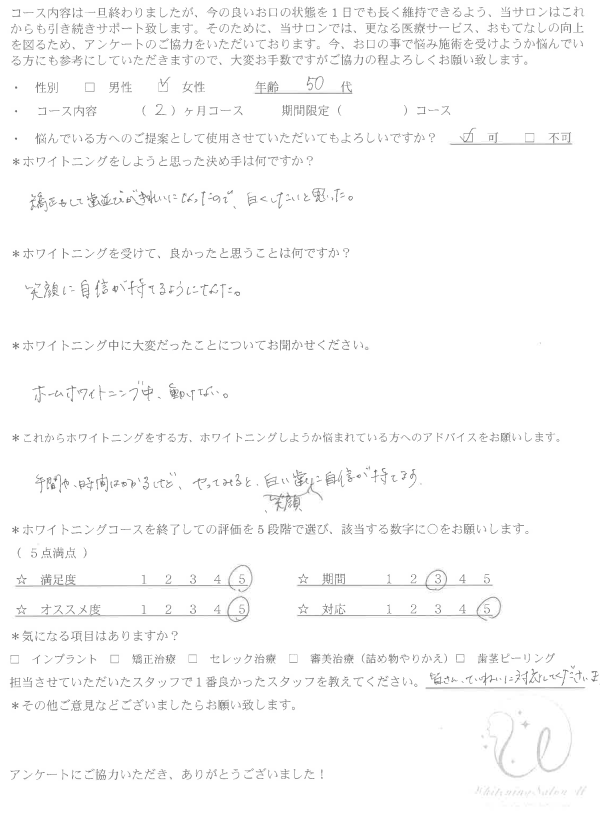 コース内容は一旦終わりましたが、今の良いお口の状態を１日でも長く維持できるよう、当サロンはこれ
からも引き続きサポート致します。そのために、当サロンでは、更なる医療サービス、おもてなしの向上
を図るため、アンケートのご協力をいただいております。今、お口の事で悩み施術を受けようか悩んでい
る方にも参考にしていただきますので、大変お手数ですがご協力の程よろしくお願い致します。
・ 性別 □ 男性 ☑ 女性 年齢 50 代
・ コース内容 （ 2 ）ヶ月コース 期間限定（ ）コース
・ 悩んでいる方へのご提案として使用させていただいてもよろしいですか？ ☑ 可 □ 不可
＊ホワイトニングをしようと思った決め手は何ですか？
矯正をして歯並びがきれいになったので、白くしたいと思った。
＊ホワイトニングを受けて、良かったと思うことは何ですか？
笑顔に自信が持てるようになった。
＊ホワイトニング中に大変だったことについてお聞かせください。
ホームホワイトニング中、動けない。
＊これからホワイトニングをする方、ホワイトニングしようか悩まれている方へのアドバイスをお願いします。
手間や、時間はかかるけど、やってみると、白い歯に自信が持てます。
笑顔
＊ホワイトニングコースを終了しての評価を５段階で選び、該当する数字に○をお願いします。
（５点満点）
☆ 満足度 1 2 3 4 5 ☆ 期間 1 2 3 4 5
☆ オススメ度 1 2 3 4 5 ☆ 対応 1 2 3 4 5
＊気になる項目はありますか？
□ インプラント □ 矯正治療 □ セレック治療 □ 審美治療（詰め物やりかえ）□ 歯茎ピーリング
担当させていただいたスタッフで１番良かったスタッフを教えてください。皆さん、ていねいに対応してくださいま
＊その他ご意見などございましたらお願い致します。
アンケートにご協力いただき、ありがとうございました！
Whitening Salon U